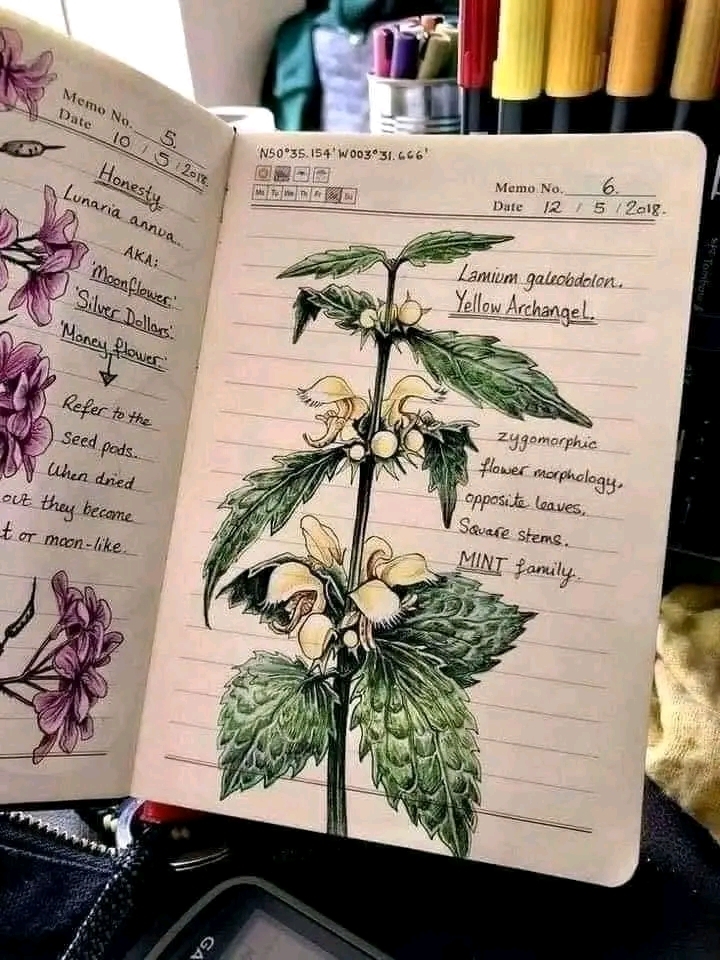 Memo No. 5.
Date 10 / 5 / 2018.
Honesty
Lunaria annua.
AKA:
'Moonflower.'
'Silver Dollars'.
'Money flower.'
Refer to the
Seed pods.
When dried
out they become
or moon-like.
'N50°35.154' W003°31.666'
Mo Tu We Th Fr Su
Memo No. 6.
Date 12 / 5 / 2018.
Lamium galeobdolon.
Yellow Archangel.
zygomorphic
flower morphology,
opposite leaves,
Square stems.
MINT family.
GA